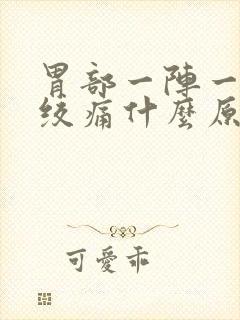 胃部一陣一
絞痛什麼原
可愛乖